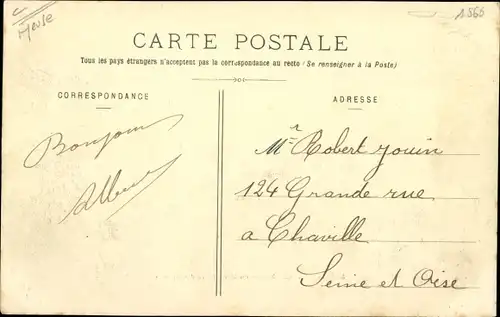 Meuse
1560
CARTE POSTALE
Tous les pays étrangers n'acceptent pas la correspondance au recto (Se renseigner à la Poste)
CORRESPONDANCE
ADRESSE
Bonjour
Mr Robert Jouin
124 Grande rue
a Chaville
Seine et Oise